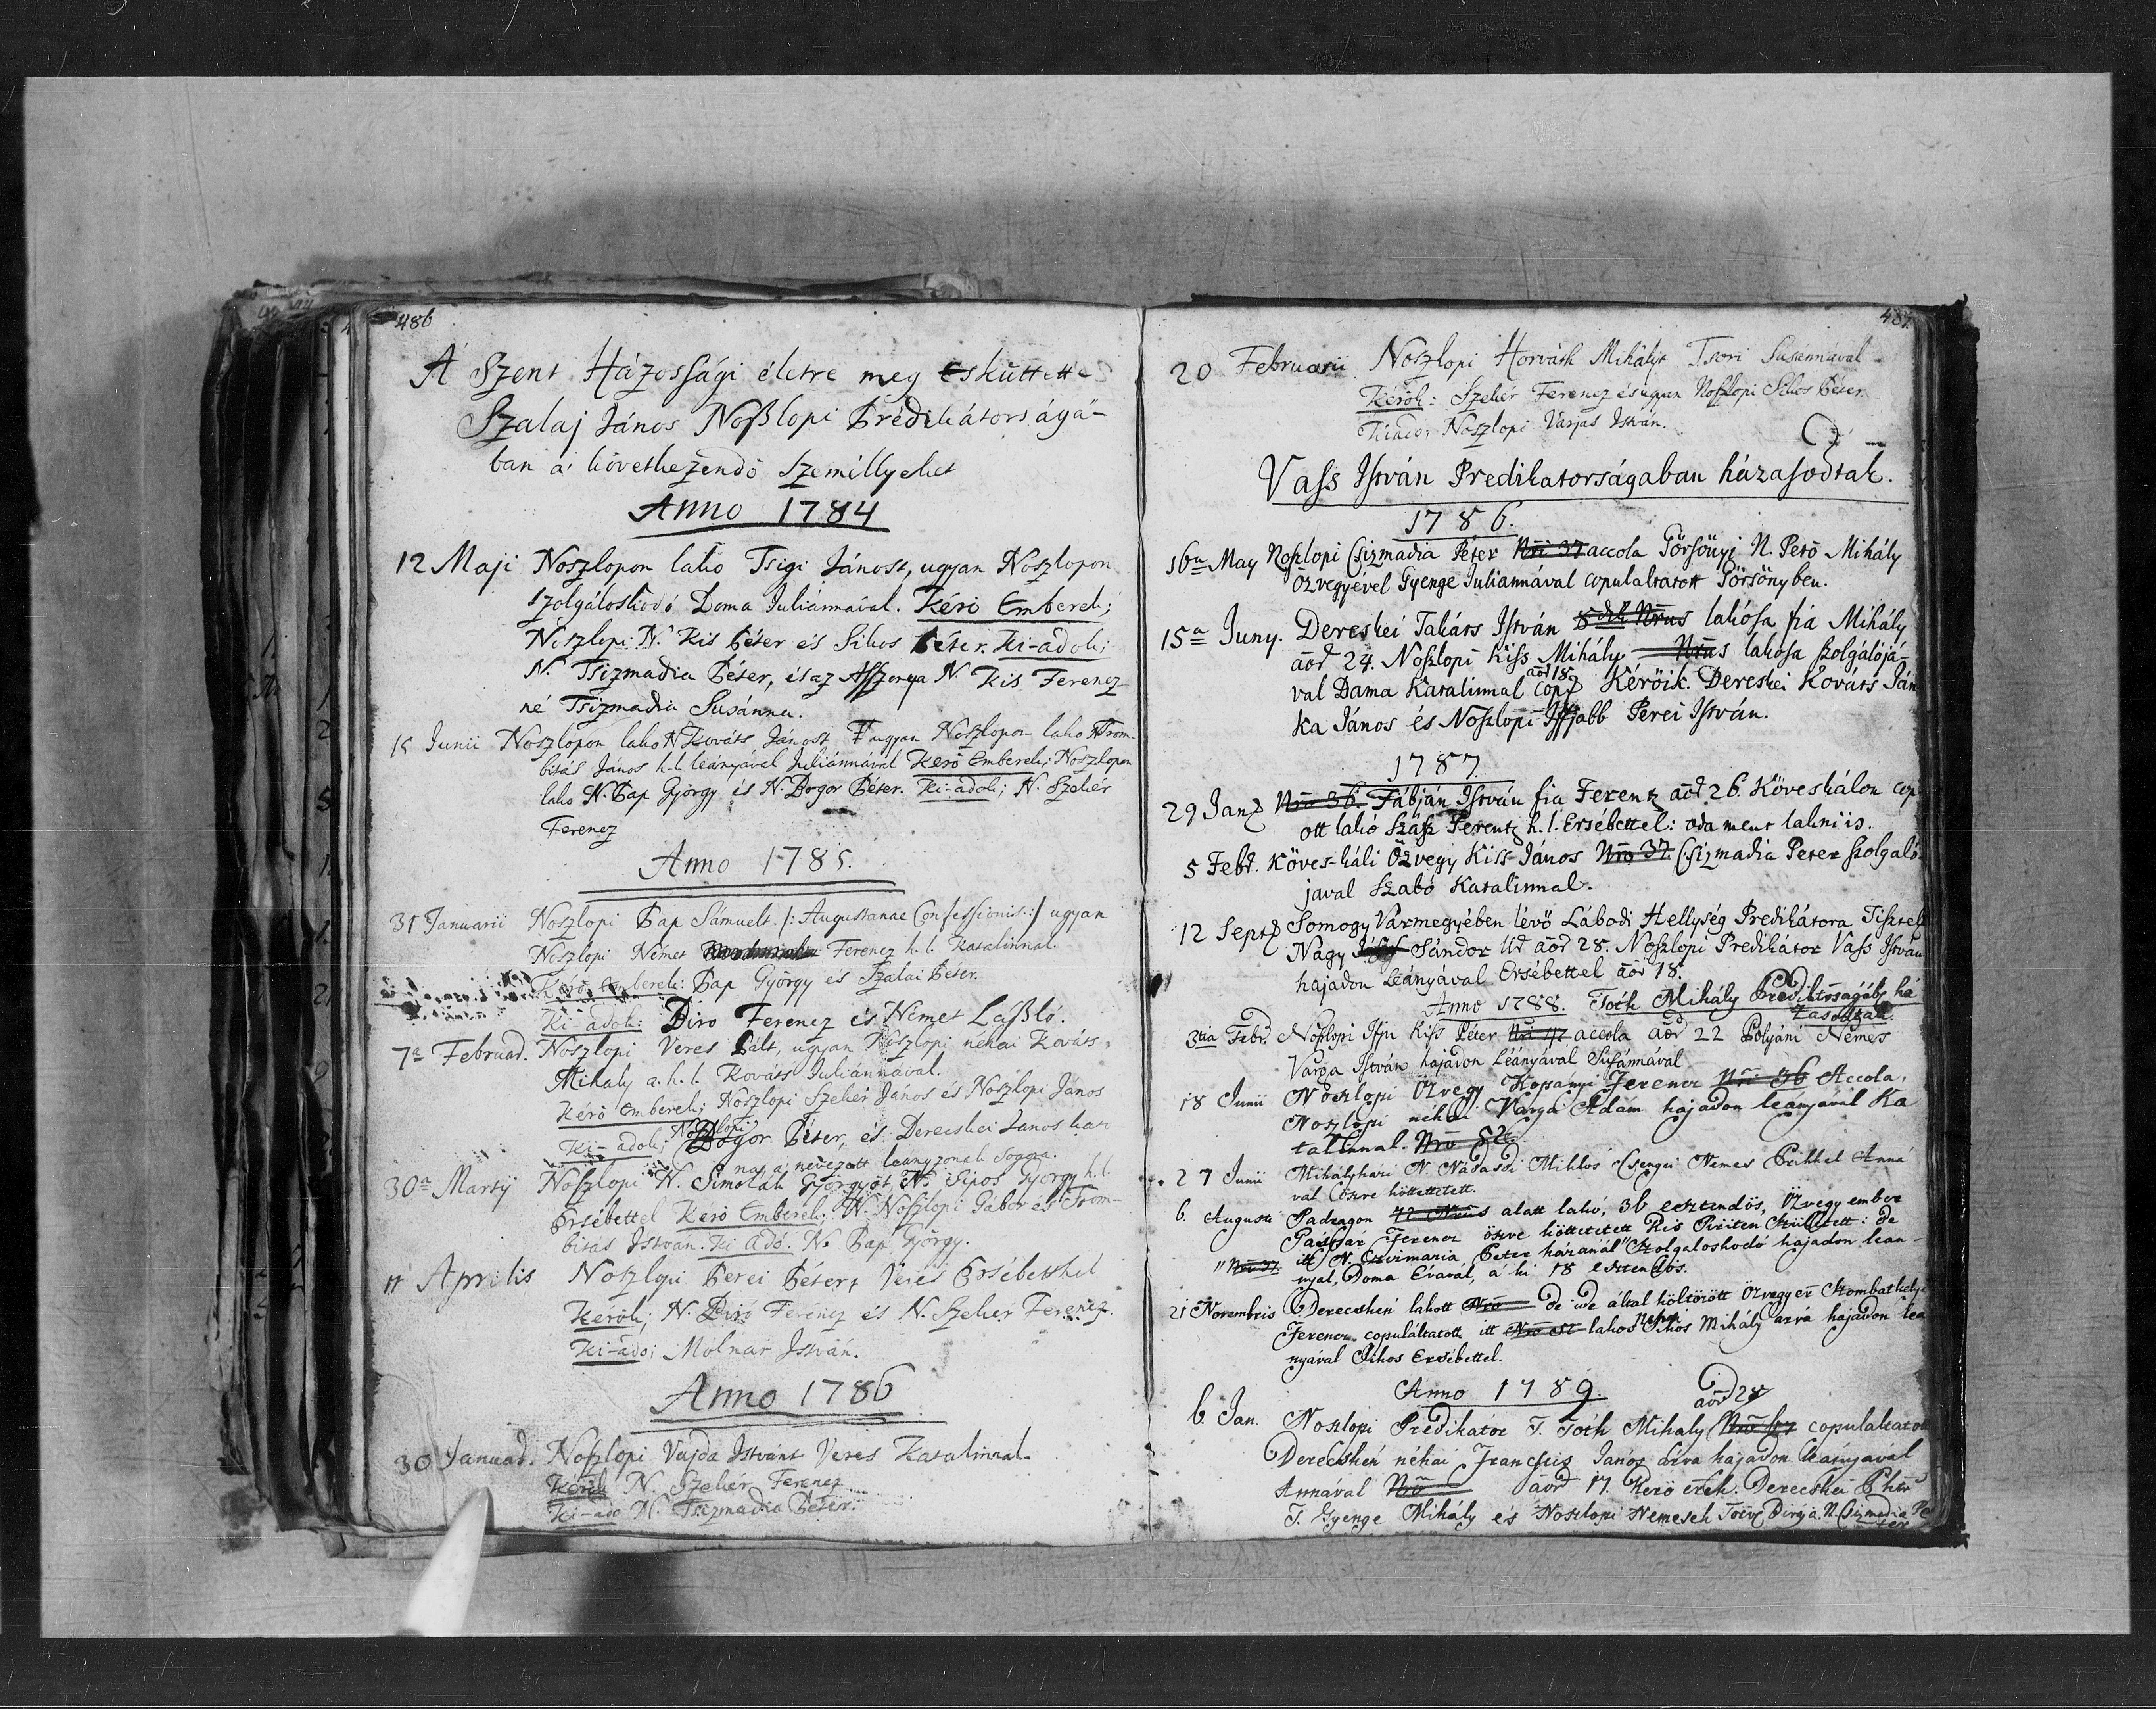 486
A Szent Házossági életre meg esküttettek
Szalaj János Noßlopi Prédikátorságá-
ban a' következendö Szemillyeket
Anno 1784
12 Maji Noszlopon lako Tsigi Jánost, ugyan Noszlopon
szolgáloskodó Doma Juliánnával. Kérö Emberek;
Noszlopi N. Kis Péter és Sikos Péter. Ki-adok;
N. Tsizmadia Péter, és az Asszonya N. Kis Ferencz-
né Tsizmadia Susánna.
Junii Noszlopon lako N Kováts Jánost ugyan Noszlopon lako N Trom-
bitás János h. l. leányával Juliánnával Kerö Emberek; Noszlopon
lako N. Pap György és N. Bogor Péter. Ki-adok; N. Szehér
Ferencz
Anno 1785.
31 Januarii Noszlopi Pap Sámuelt /: Augustanae Confessionis :/ ugyan
Noszlopi Német Ferencz h. l. Katalinnal.
Kérö Emberek: Pap György és Szalai Péter.
Ki-adok: Biro Ferencz és Német Laßló.
7a Februar. Noszlopi Veres Pált, ugyan Noszlopi nehai Kováts
Mihaly a. h. l. Kováts Juliánnával.
Kérö Emberek; Noszlopi Szehér János és Noszlopi János
Ki-adok; Noszlopi Bogor Péter, és Derecskei Janos kato
na, a' nevezett leanyzonak Sogora.
30a Martij Noszlopi N. Simolák Györgyöt N. Sipos György h. l.
Ersébettel Kerö Emberek; N. Noszlopi Gábor es Trom-
bitás István. Ki adó. N. Pap György.
11 Aprilis Noszlopi Perei Pétert Veres Ersébethel
Kérök; N. Biró Ferencz és N. Szeher Ferencz.
Ki-ado; Molnar István.
Anno 1786
30 Januar. Noszlopi Vajda Istvánt Veres Katalinnal.
Kérök N. Szehér Ferencz
Ki-ado N. Tsizmadia Péter
487.
20 Februarii Noszlopi Horváth Mihályt Tsori Susannával
Kérök: Szehér Ferencz és ugyan Noszlopi Sikos Péter.
Kiado, Noszlopi Varjas István.
Vass István Predikatorságaban házasodtak.
1786.
16a May Noszlopi Csizmadia Péter Nro 37 accola Pörsönyi N. Petö Mihály
Özvegyével Gyenge Juliannával copulaltatott Pörsönyben.
15a Juny. Dereskei Takáts István lakósa fia Mihály
aõd 24. Noszlopi Kiss Mihály Nrus lakosa szolgálójá-
val Dama Katalinnal aõd 18. cop. Kéröik. Dereskei Kováts Ján
ka János és Noszlopi Iffjabb Perei István.
1787.
29 Jan. Nro 36. Fábján István fia Ferentz aõd. 26. Köveskálon cop
ott lakó Szász Ferentz h. l. Ersébettel: oda ment lakni is.
5 Febr. Köves-káli Özvegy Kiss János Nro 37. Csizmadia Peter szolgaló-
javal Szabó Katalinnal.
12 Sept. Somogy Vármegyében lévö Lábodi Hellység Predikátora Tisztel
Nagy Sándor Ud aõd 28. Noszlopi Predikátor Vass István
hajadon Leányával Ersébettel aõd 18.
Anno 1788. Toth Mihály Predikátorságáb. há
zasodtak.
3tia Febr. Noszlopi Ifju Kiss Péter Nro 47 accola aõd 22 Polyáni Nemes
Varga István hajadon Léányával Susánnával
18 Junii Noszlopi Özvegy Kopsányi Ferencz Nro 36 Accola,
Noszlopi néhai Varga Ádám hajadon leányával Ka
talinnal. Nro
27 Junii Mihályházi N. Nádasdi Miklós Csengei Nemes Anná
val öszve köttettetett.
6. Augusti Padragon 72 Nrus alatt lakó, 36 esztendös, Özvegy ember
Ferencz öszve köttetett Kis született: de
" Nro 37. itt N. Csizmazia Peter házanál szolgaloskodó hajadon lean-
nyal, Doma Évaval, á ki 18 esztendös.
21 Novembris Derecskén lakott Nro de ide által költözött özvegyer Szombathelyi
Ferencz copuláltatott itt lakos néhai Sikos Mihály arvá hajadon lea
nyával Sikos Ersébettel.
Anno 1789.
6. Jan. Noszlopi Prédikátor T. Toth Mihaly aõd 28 Nro 67 copulaltatott
Derecskén néhai Francsics János árva hajadon leányával
Annával Nro aõd 17. Kerö Derecskei
T. Gyenge Mihály és Noszlopi Nemesek N. Csizmadia Pé
ter